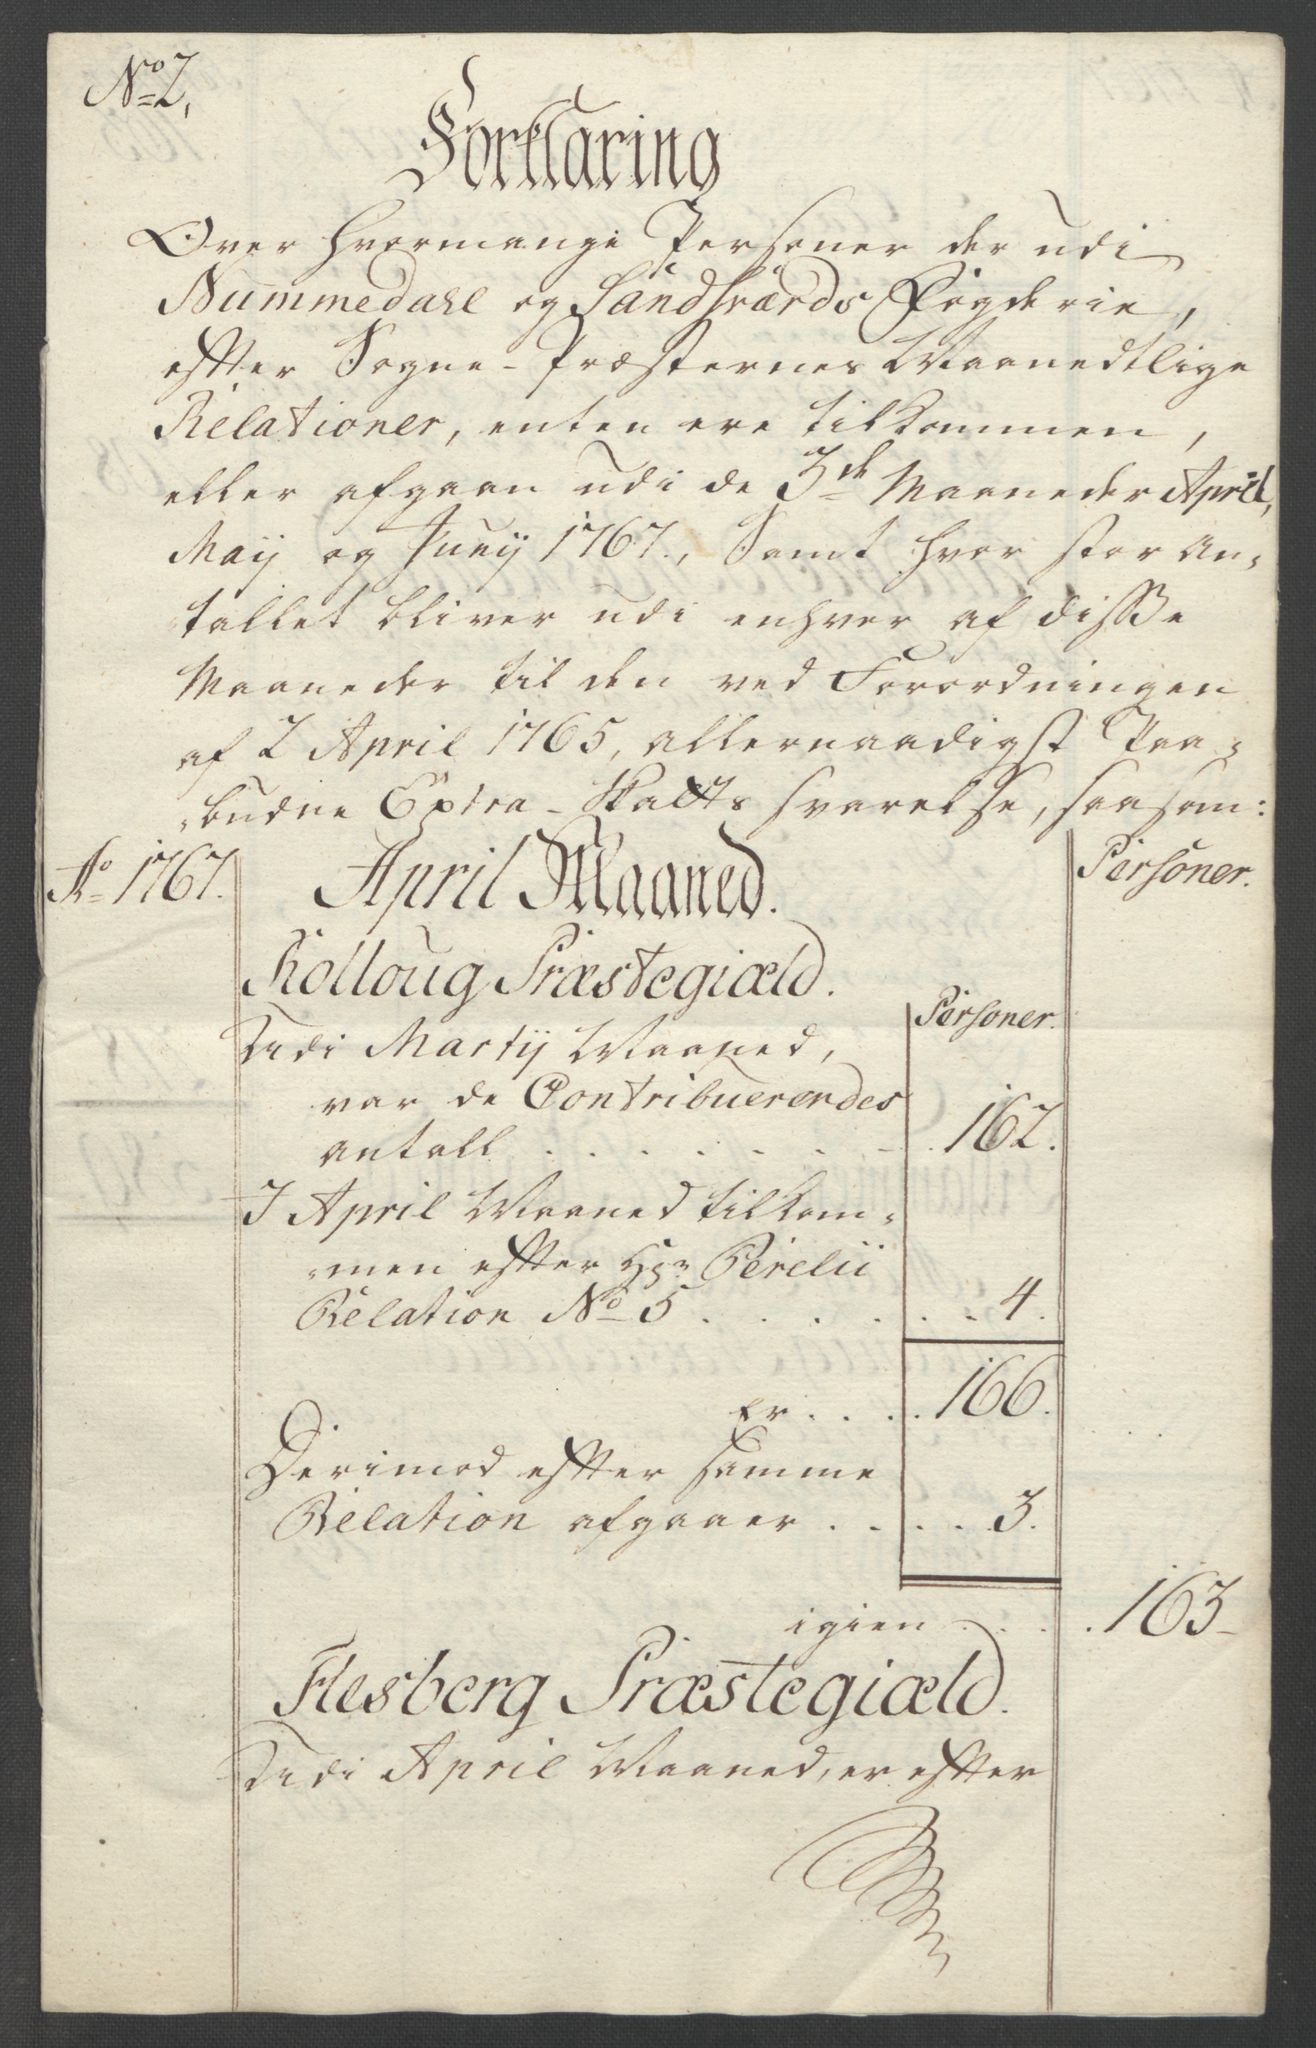 No 2,
Forklaring
Over hvormange Personer der udi
Nummedahl og Sandsværds Fogderie,
efter Sogne-Præsternes Maanedtlige
Relationer, enten ere tilkommen,
eller afgaaen udi de 3de Maaneder April,
Maij og Junij 1767., Samt hvor stor An-
tallet bliver udi enhver af disse
Maaneder til den ved Forordningen
af 2 April 1765, allernaadigst Paa-
budne Extra-Skatts svarelse, saasom:
Ao 1767.
April Maaned.
Personer.
Rolloug Præstegiæld.
Personer.
Udi Martij Maaned,
var de Contribuerendes
antall . . . . . . . . 162.
I April Maaned tilkom-
men efter Hr: Perelii
Relation No 5 . . . . . . 4.
Er . . . . 166.
Derimod efter samme
Relation afgaaer . . . . . 3.
igien . . . . 163
Flesberg Præstegiæld.
Udi April Maaned, er efter